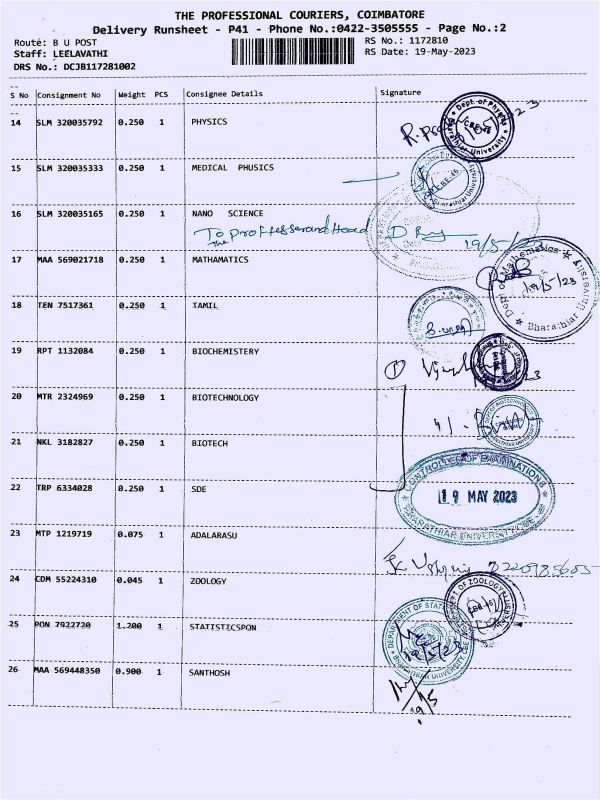 THE PROFESSIONAL COURIERS, COIMBATORE
Delivery Runsheet - P41 - Phone No.:0422-3505555 - Page No.:2
Route: B U POST
Staff: LEELAVATHI
DRS No.: DCJB117281002
RS No.: 1172810
RS Date: 19-May-2023
S No Consignment No Weight PCS Consignee Details Signature
14 SLM 320035792 0.250 1 PHYSICS
15 SLM 320035333 0.250 1 MEDICAL PHUSICS
16 SLM 320035165 0.250 1 NANO SCIENCE
To The Professer and Head
19/5/23
17 MAA 569021718 0.250 1 MATHAMATICS
Dept. of Mathematics
19/5/23
Bharathiar University
18 TEN 7517361 0.250 1 TAMIL
19 RPT 1132084 0.250 1 BIOCHEMISTERY
20 MTR 2324969 0.250 1 BIOTECHNOLOGY
21 NKL 3182827 0.250 1 BIOTECH
22 TRP 6334028 0.250 1 SDE
CONTROLLER OF EXAMINATIONS
19 MAY 2023
BHARATHIAR UNIVERSITY, CBE
23 MTP 1219719 0.075 1 ADALARASU
24 CDM 55224310 0.045 1 ZOOLOGY
25 PON 7922720 1.200 1 STATISTICSPON
19/5/23
26 MAA 569448350 0.900 1 SANTHOSH